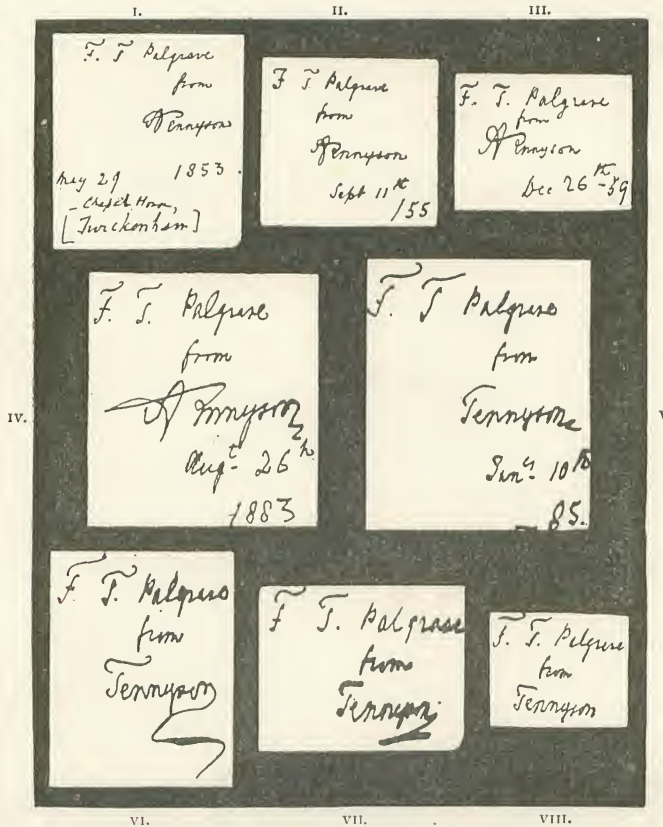 I. II. III.
F. T Palgrave
from
ATennyson
May 29 1853.
Chapel House,
[Twickenham]
F T Palgrave
from
ATennyson
Sept 11th
/55
F. T. Palgrave
from
ATennyson
Dec 26th -59
IV.
F. T. Palgrave
from
ATennyson
Augt 26th
1883
F. T Palgrave
from
Tennyson
Jany 10th
85.
V
F. T. Palgrave
from
Tennyson
F T. Palgrave
from
Tennyson.
F. T. Palgrave
from
Tennyson
VI. VII. VIII.